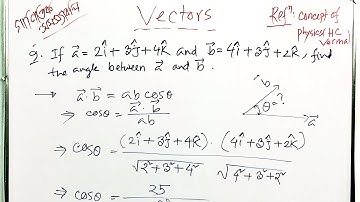 Vectors
Refⁿ: concept of
physics HC
Verma
Q. If a⃗ = 2î + 3ĵ + 4k̂ and b⃗ = 4î + 3ĵ + 2k̂, find
the angle between a⃗ and b⃗.
→ a⃗ · b⃗ = ab cosθ
⇒ cosθ = a⃗ · b⃗ / ab
b⃗
θ = ?
a⃗
⇒ cosθ = (2î + 3ĵ + 4k̂) · (4î + 3ĵ + 2k̂) / √2²+3²+4² √4²+3²+2²
⇒ cosθ = 25